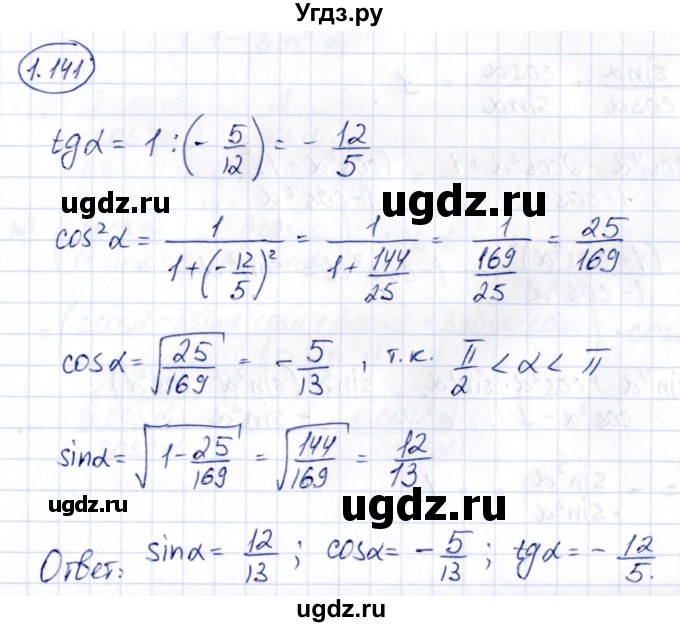 Угдз.ру
1.141
tgα = 1 : (- 5/12) = - 12/5
ugdz.ru ugdz.ru
cos²α = 1/(1+(-12/5)²) = 1/(1+144/25) = 1/(169/25) = 25/169
cosα = √(25/169) = - 5/13 , т.к. π/2 < α < π
ugdz.ru ugdz.ru
sinα = √(1-25/169) = √(144/169) = 12/13
ugdz.ru
Ответ: sinα = 12/13 ; cosα = - 5/13 ; tgα = - 12/5.
ugdz.ru